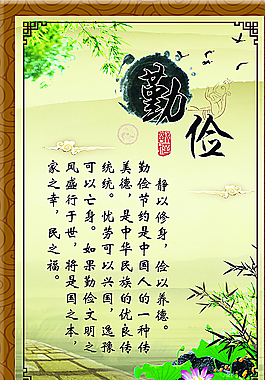 勤
俭
静以修身，俭以养德。
勤俭节约是中国人的一种传
美德，是中华民族的优良传
统统。忧劳可以兴国，逸豫
可以亡身。如果勤俭文明之
风盛行于世，将是国之本，
家之幸，民之福。